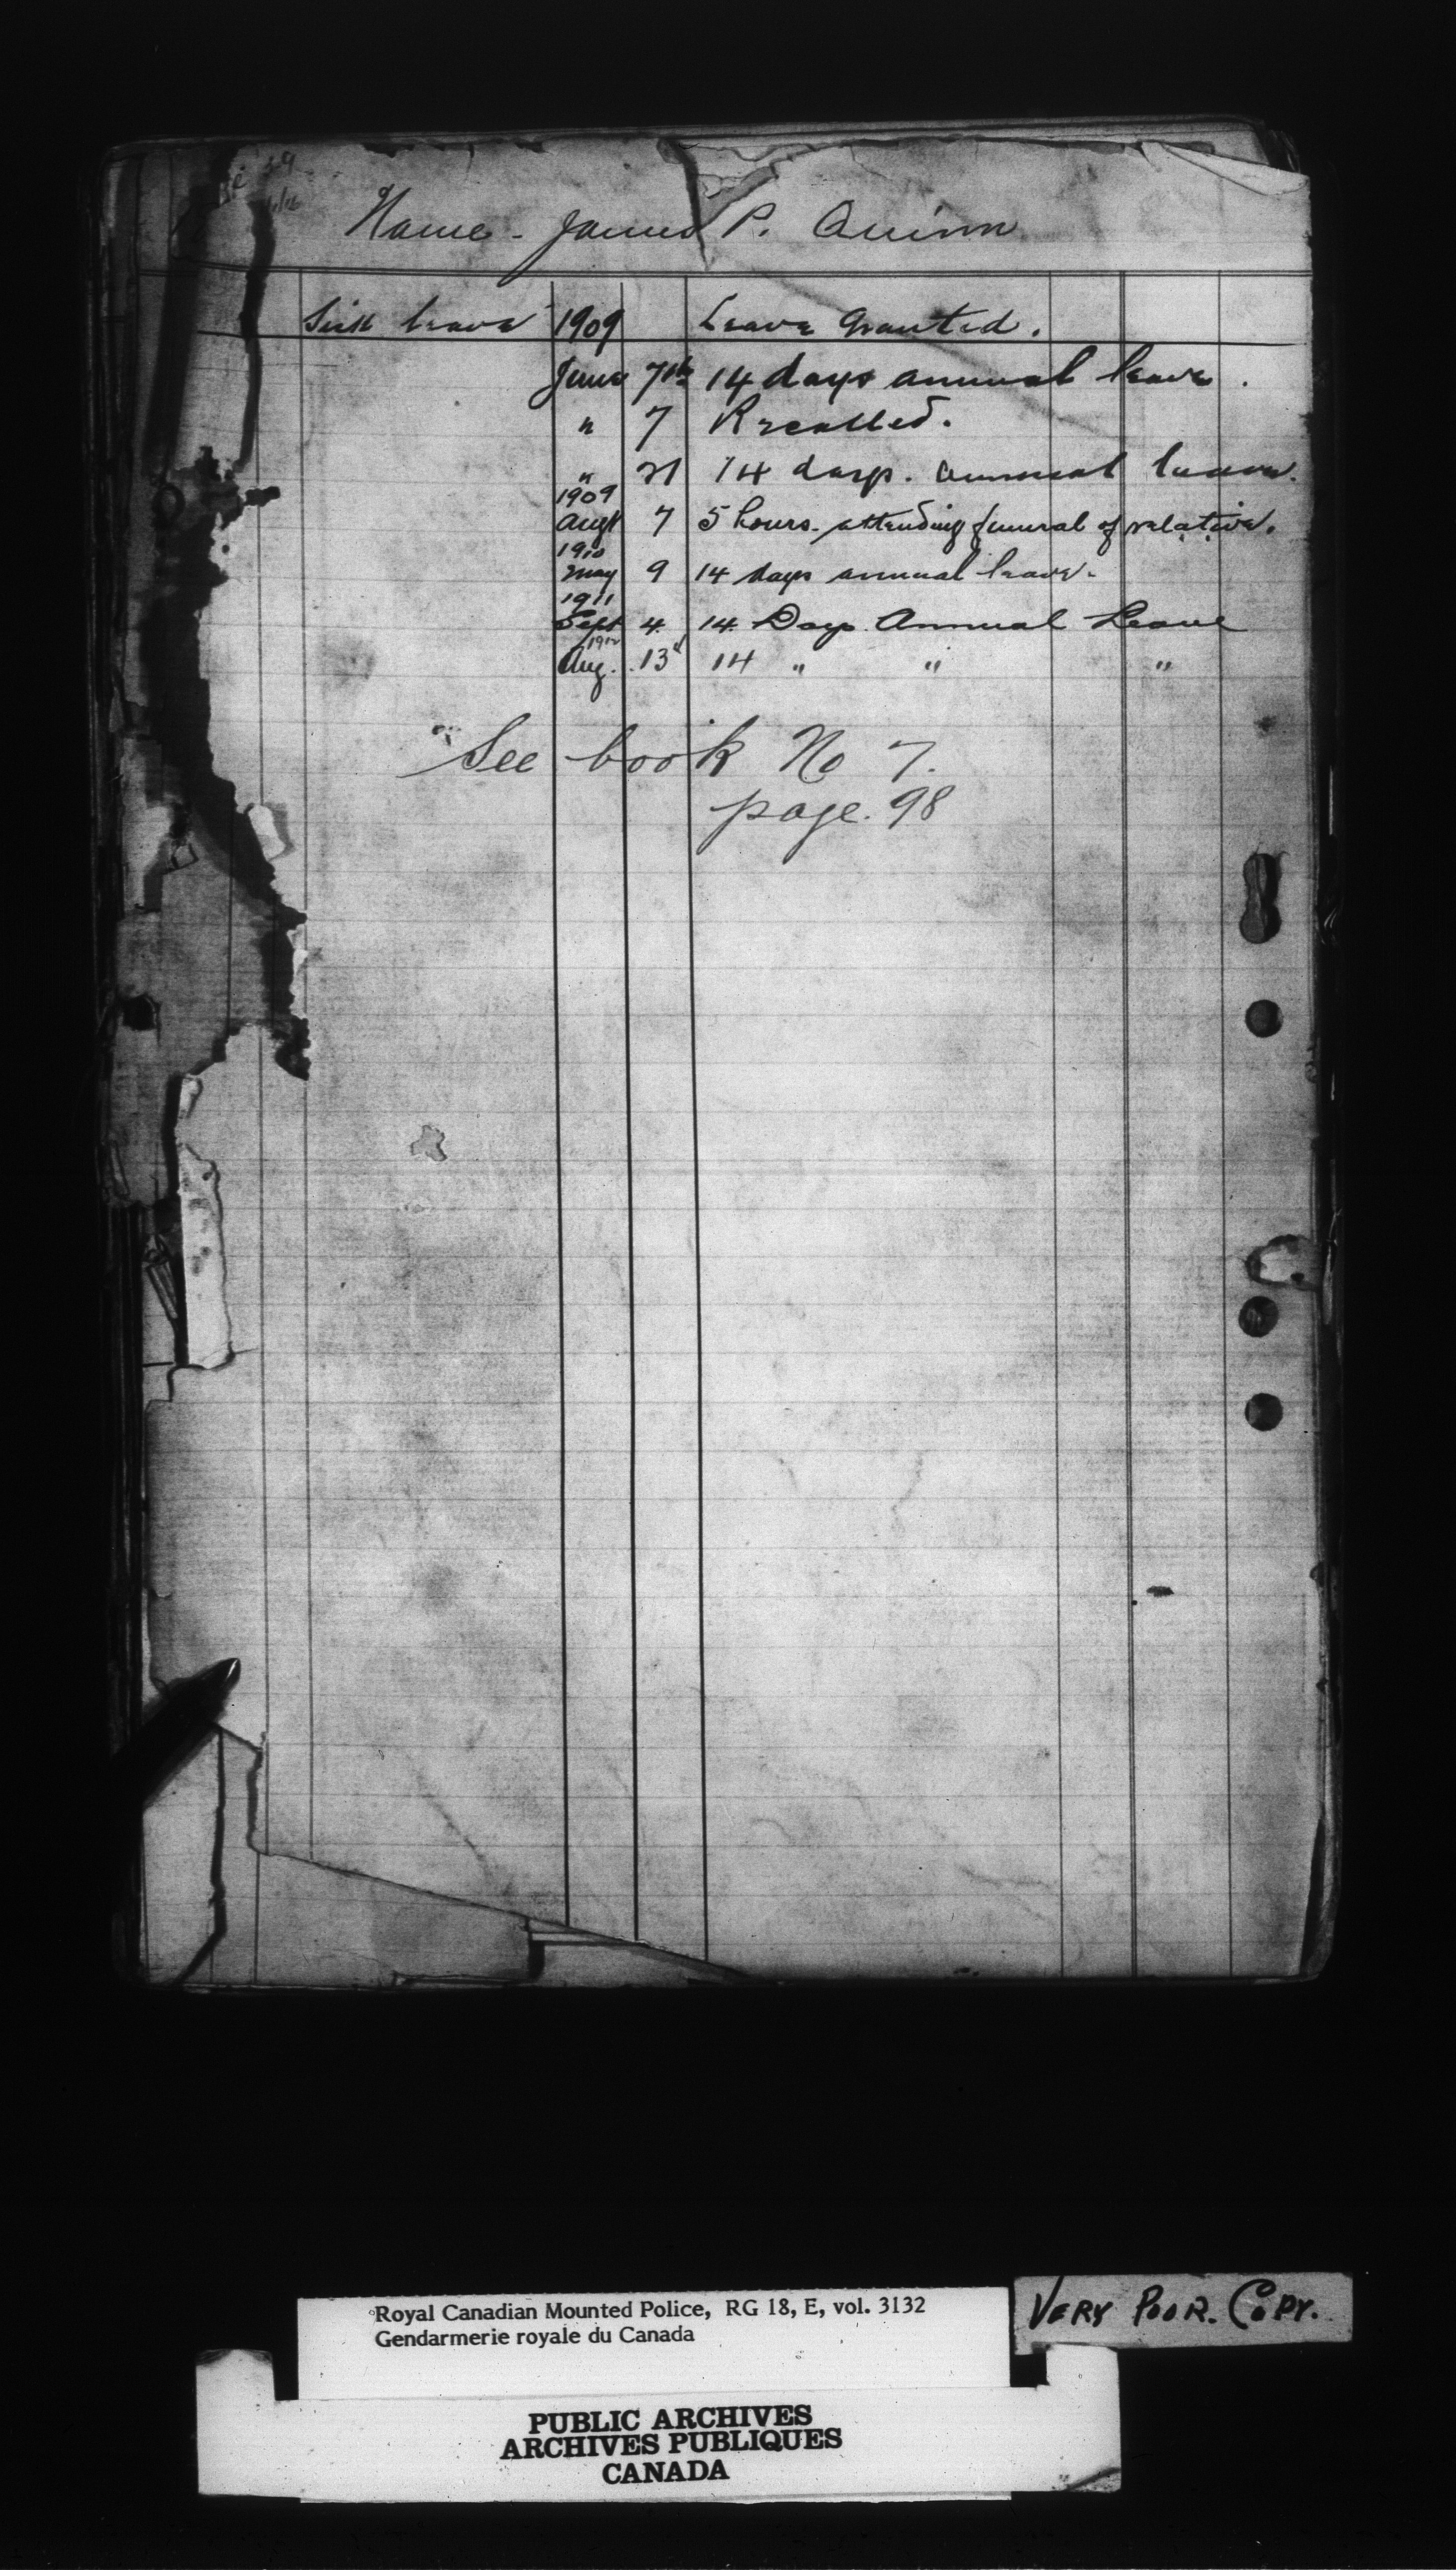 Name - James P. Quinn
Sick leave 1909 Leave Granted.
June 7th 14 days annual leave.
" 7 Recalled.
" 21 14 days. annual leave.
1909
Augt 7 5 hours. attending funeral of relative.
1910
May 9 14 days annual leave.
1911
Sept 4. 14. Days Annual Leave
1912
Aug. 13 14 " " "
See book No 7.
page. 98
Royal Canadian Mounted Police, RG 18, E, vol. 3132
Gendarmerie royale du Canada
VERY POOR. COPY.
PUBLIC ARCHIVES
ARCHIVES PUBLIQUES
CANADA